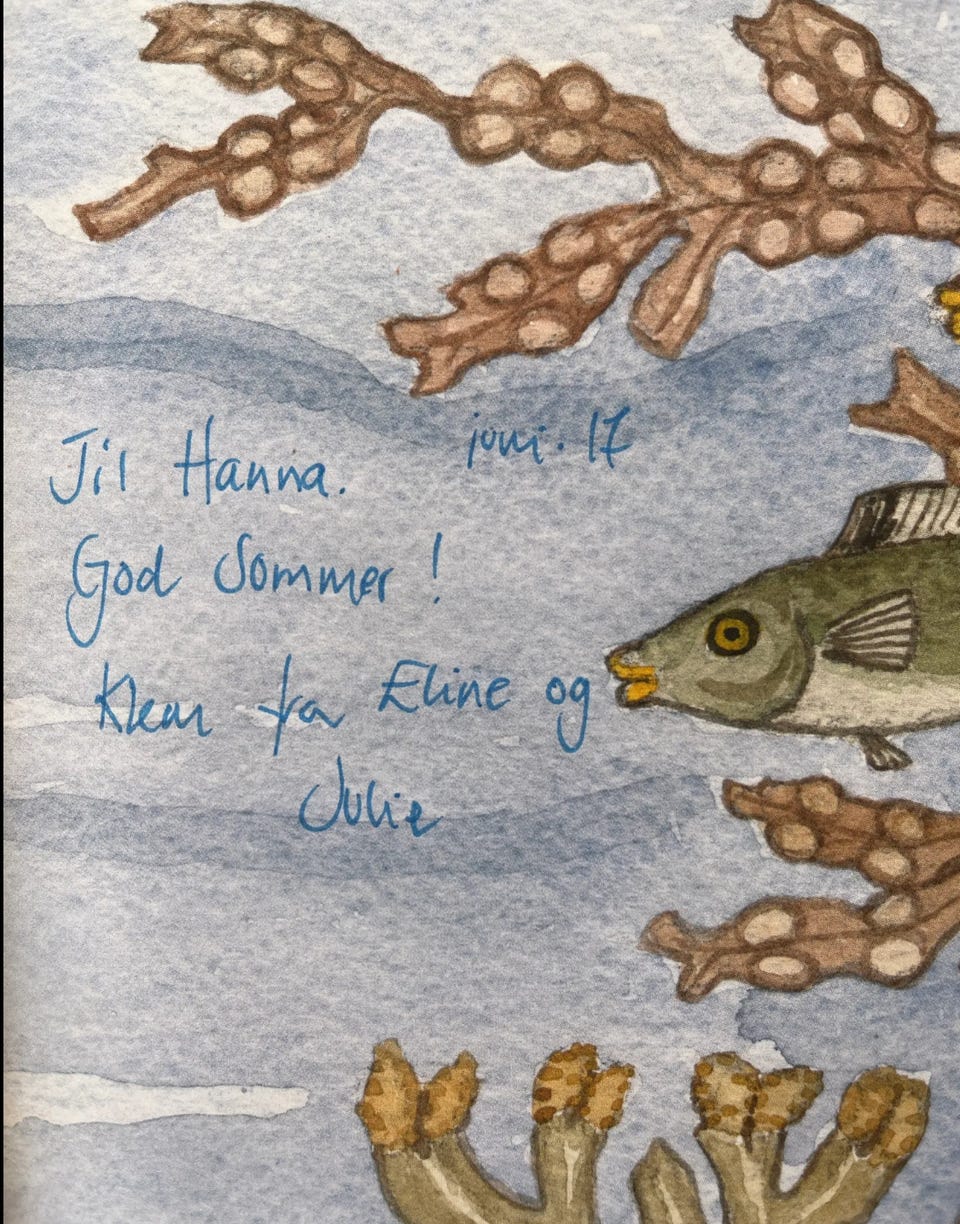 juni. 17
Til Hanna.
God Sommer!
Klem fra Eline og
Julie